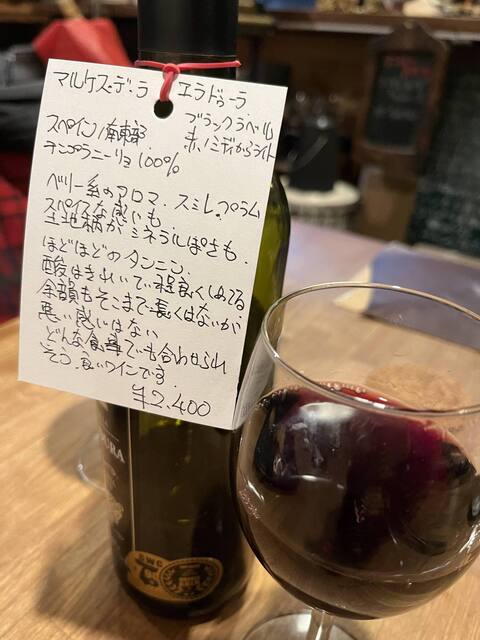 マルケス・デ・ラ エラドゥーラ
ブラックラベル
スペイン南東部 赤/ミディからライト
テンプラニーリョ 100%
ベリー系のアロマ、スミレ、プラム
スパイスな感じも。
土地柄か ミネラルぽさも、
ほどほどのタンニン。
酸はきれいで程良くしめてる
余韻もそこまで長くはないが、
悪い感じはない
どんな食事でも合わせられ
そう、良いワインです。
¥2,400
URA
GWC